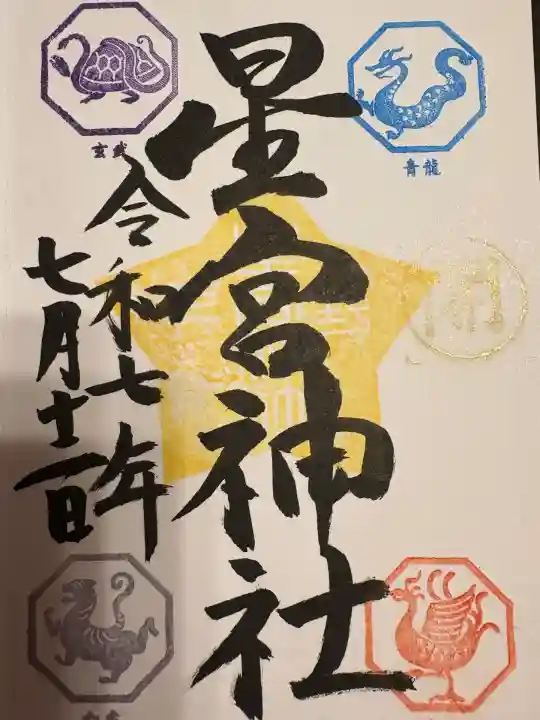 青龍
星宮神社
玄武
令和七年
七月十二日